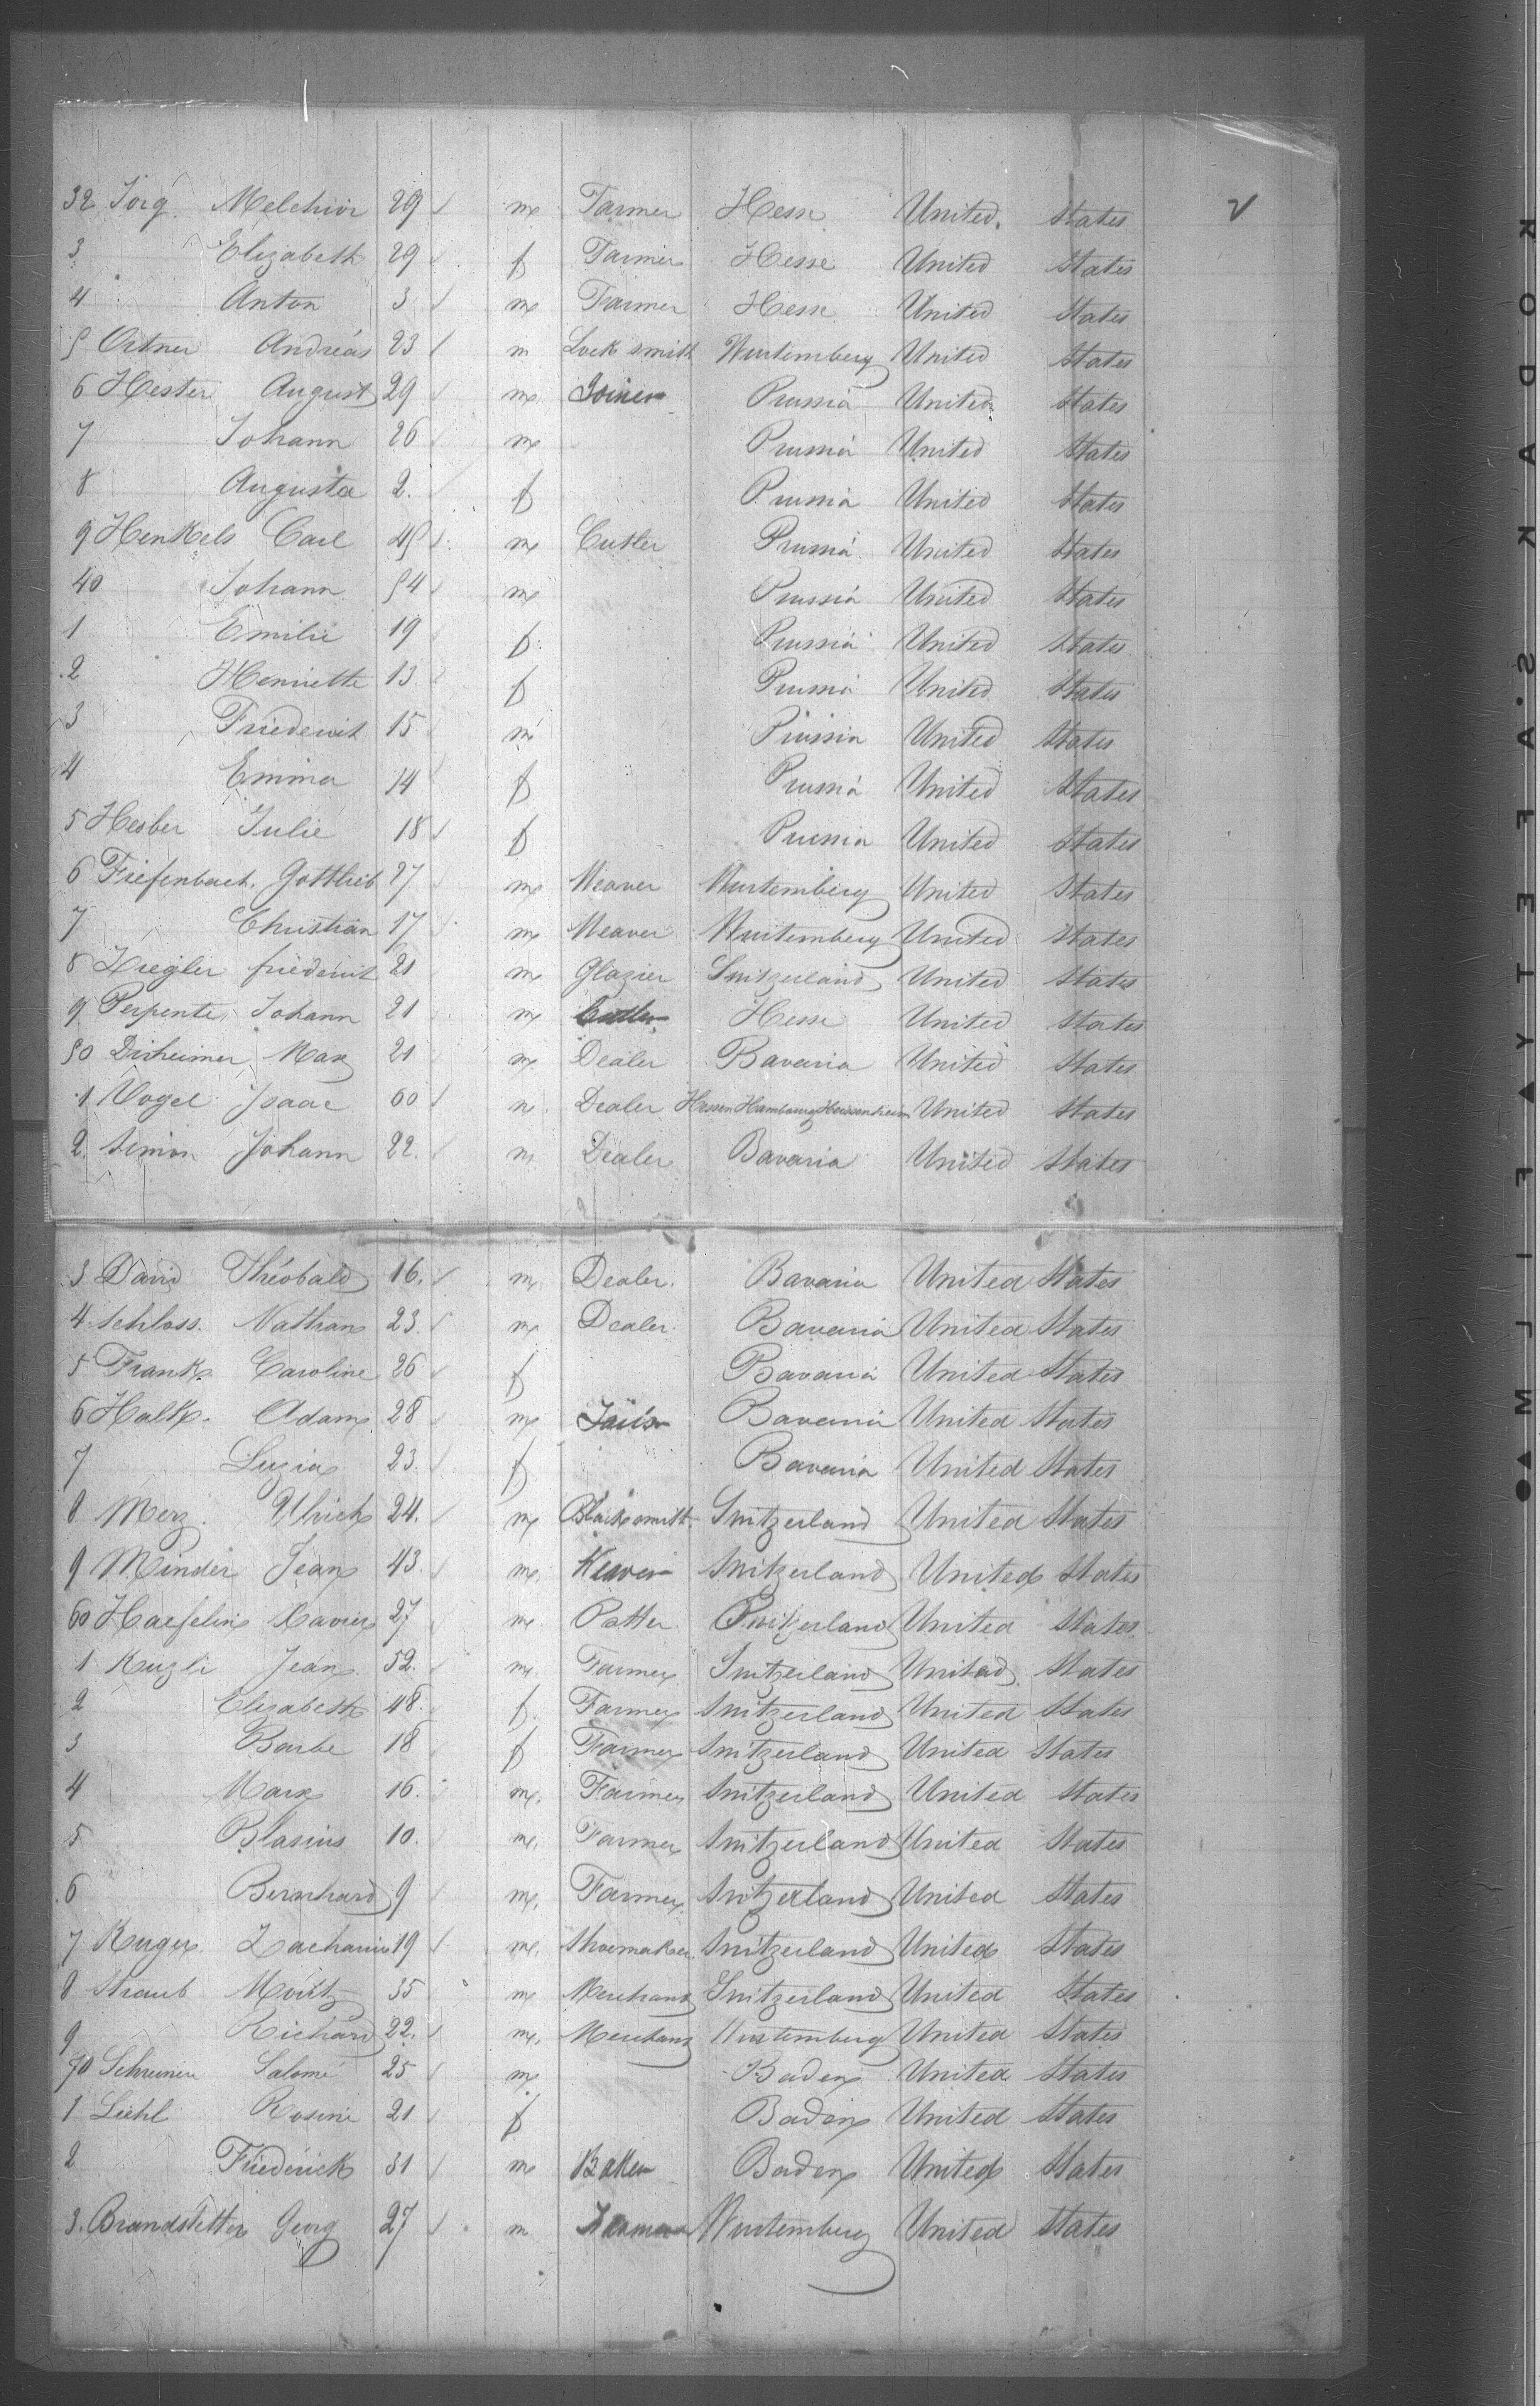 32 Jörg Melchior 29 m Farmer Hesse United States
3 Elizabeth 29 f Farmer Hesse United States
4 Anton 3 m Farmer Hesse United States
5 Ortner Andreas 23 m Lock smith Wurtemberg United States
6 Hester August 29 m Joiner Prussia United States
7 Johann 26 m Prussia United States
8 Augusta 2. f Prussia United States
9 Henkels Carl 45 m Cutler Prussia United States
40 Johann 54 m Prussia United States
1 Emilie 19 f Prussia United States
2 Henriette 13 f Prussia United States
3 Friederich 15 m Prussia United States
4 Emma 14 f Prussia United States
5 Hesber Julie 18 f Prussia United States
6 Tiefenbach Gottlieb 27 m Weaver Wurtemberg United States
7 Christian 17 m Weaver Wurtemberg United States
8 Ziegler friederich 21 m Glazier Switzerland United States
9 Perpente Johann 21 m Cutler Hesse United States
50 Dirheimer Max 21 m Dealer Bavaria United States
1 Vogel Isaac 60 m Dealer Hessen Hambourg United States
2. Simon Johann 22. m Dealer Bavaria United States
3 David Théobald 16. m Dealer. Bavaria United States
4 Schloss. Nathan 23 m Dealer Bavaria United States
5 Frank Caroline 26 f Bavaria United States
6 Halk. Adam 28 m Bavaria United States
7 Luzia 23 f Bavaria United States
8 Merz. Ulrich 24. m Blacksmith Switzerland United States
9 Minder Jean 43. m Weaver Switzerland United States
60 Haefelin Xavier 27 m Potter Switzerland United States
1 Kuzli Jean 52. m Farmer Switzerland United States
2 Elizabeth 48. f. Farmer Switzerland United States
3 Barbe 18 f Farmer Switzerland United States
4 Marx 16. m. Farmer Switzerland United States
5 Blasius 10. m. Farmer Switzerland United States
6 Bernhard 9 m. Farmer Switzerland United States
7 Ruger Zacharie 19 m. Shoemaker Switzerland United States
8 Straub Moritz 35 m Merchand Switzerland United States
9 Richard 22. m. Merchand Wurtemberg United States
70 Schreiner Salomé 25 m Baden United States
1 Liehl Rosine 21 f Baden United States
2 Friederick 31 m Baker Baden United States
3. Brandstetter Georg 27 m Farmer Wurtemberg United States
KODAK S.A.F.E.T.Y. FILM